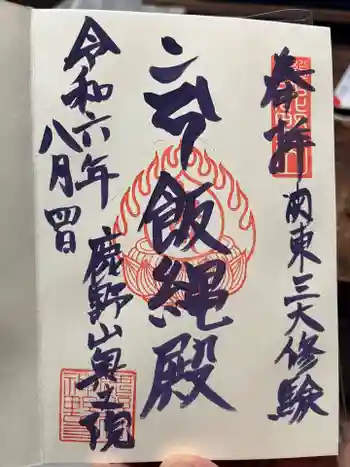 奉拝
関東三大修験
飯縄殿
鹿野山奥之院
令和六年
八月四日